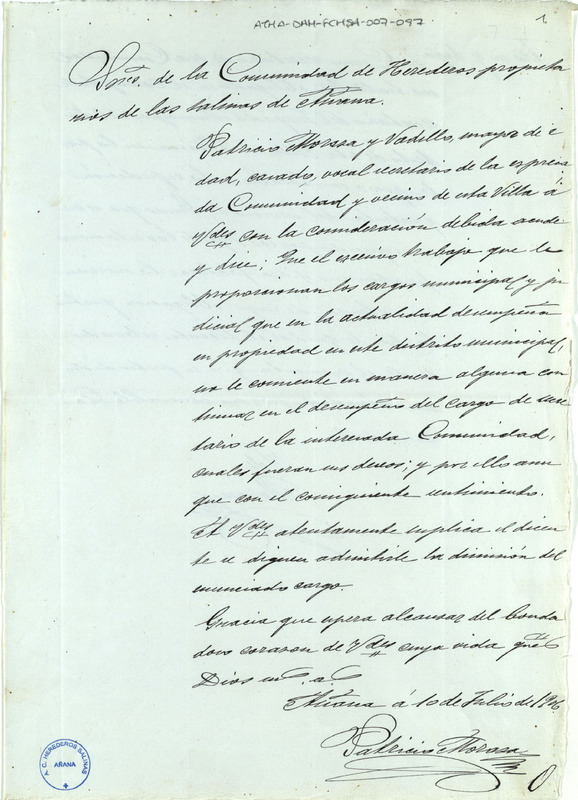 ATHA-DAH-FCHSA-007-097
1
Sres. de la Comunidad de Herederos propieta
rios de las salinas de Añana.
Patricio Moraza y Vadillo, mayor de e
dad, casado, vocal secretario de la expresa
da Comunidad y vecino de esta Villa á
Vdes con la consideración debida acude
y dice: Que el excesivo trabajo que le
proporcionan los cargos municipal y ju
dicial que en la actualidad desempeña
en propiedad en este distrito municipal,
no le consiente en manera alguna con
tinuar en el desempeño del cargo de secre
tario de la interesada Comunidad,
cuales fueran sus deseos; y por ello aun
que con el consiguiente sentimiento.
A Vdes atentamente suplica el dicen
te se dignen admitirle la dimisión del
enunciado cargo.
Gracia que espera alcanzar del bonda
doso corazon de Vdes cuya vida gue
Dios ms. as.
Añana á 10 de Julio de 1906
Patricio Moraza
A.C. HEREDEROS SALINAS
AÑANA